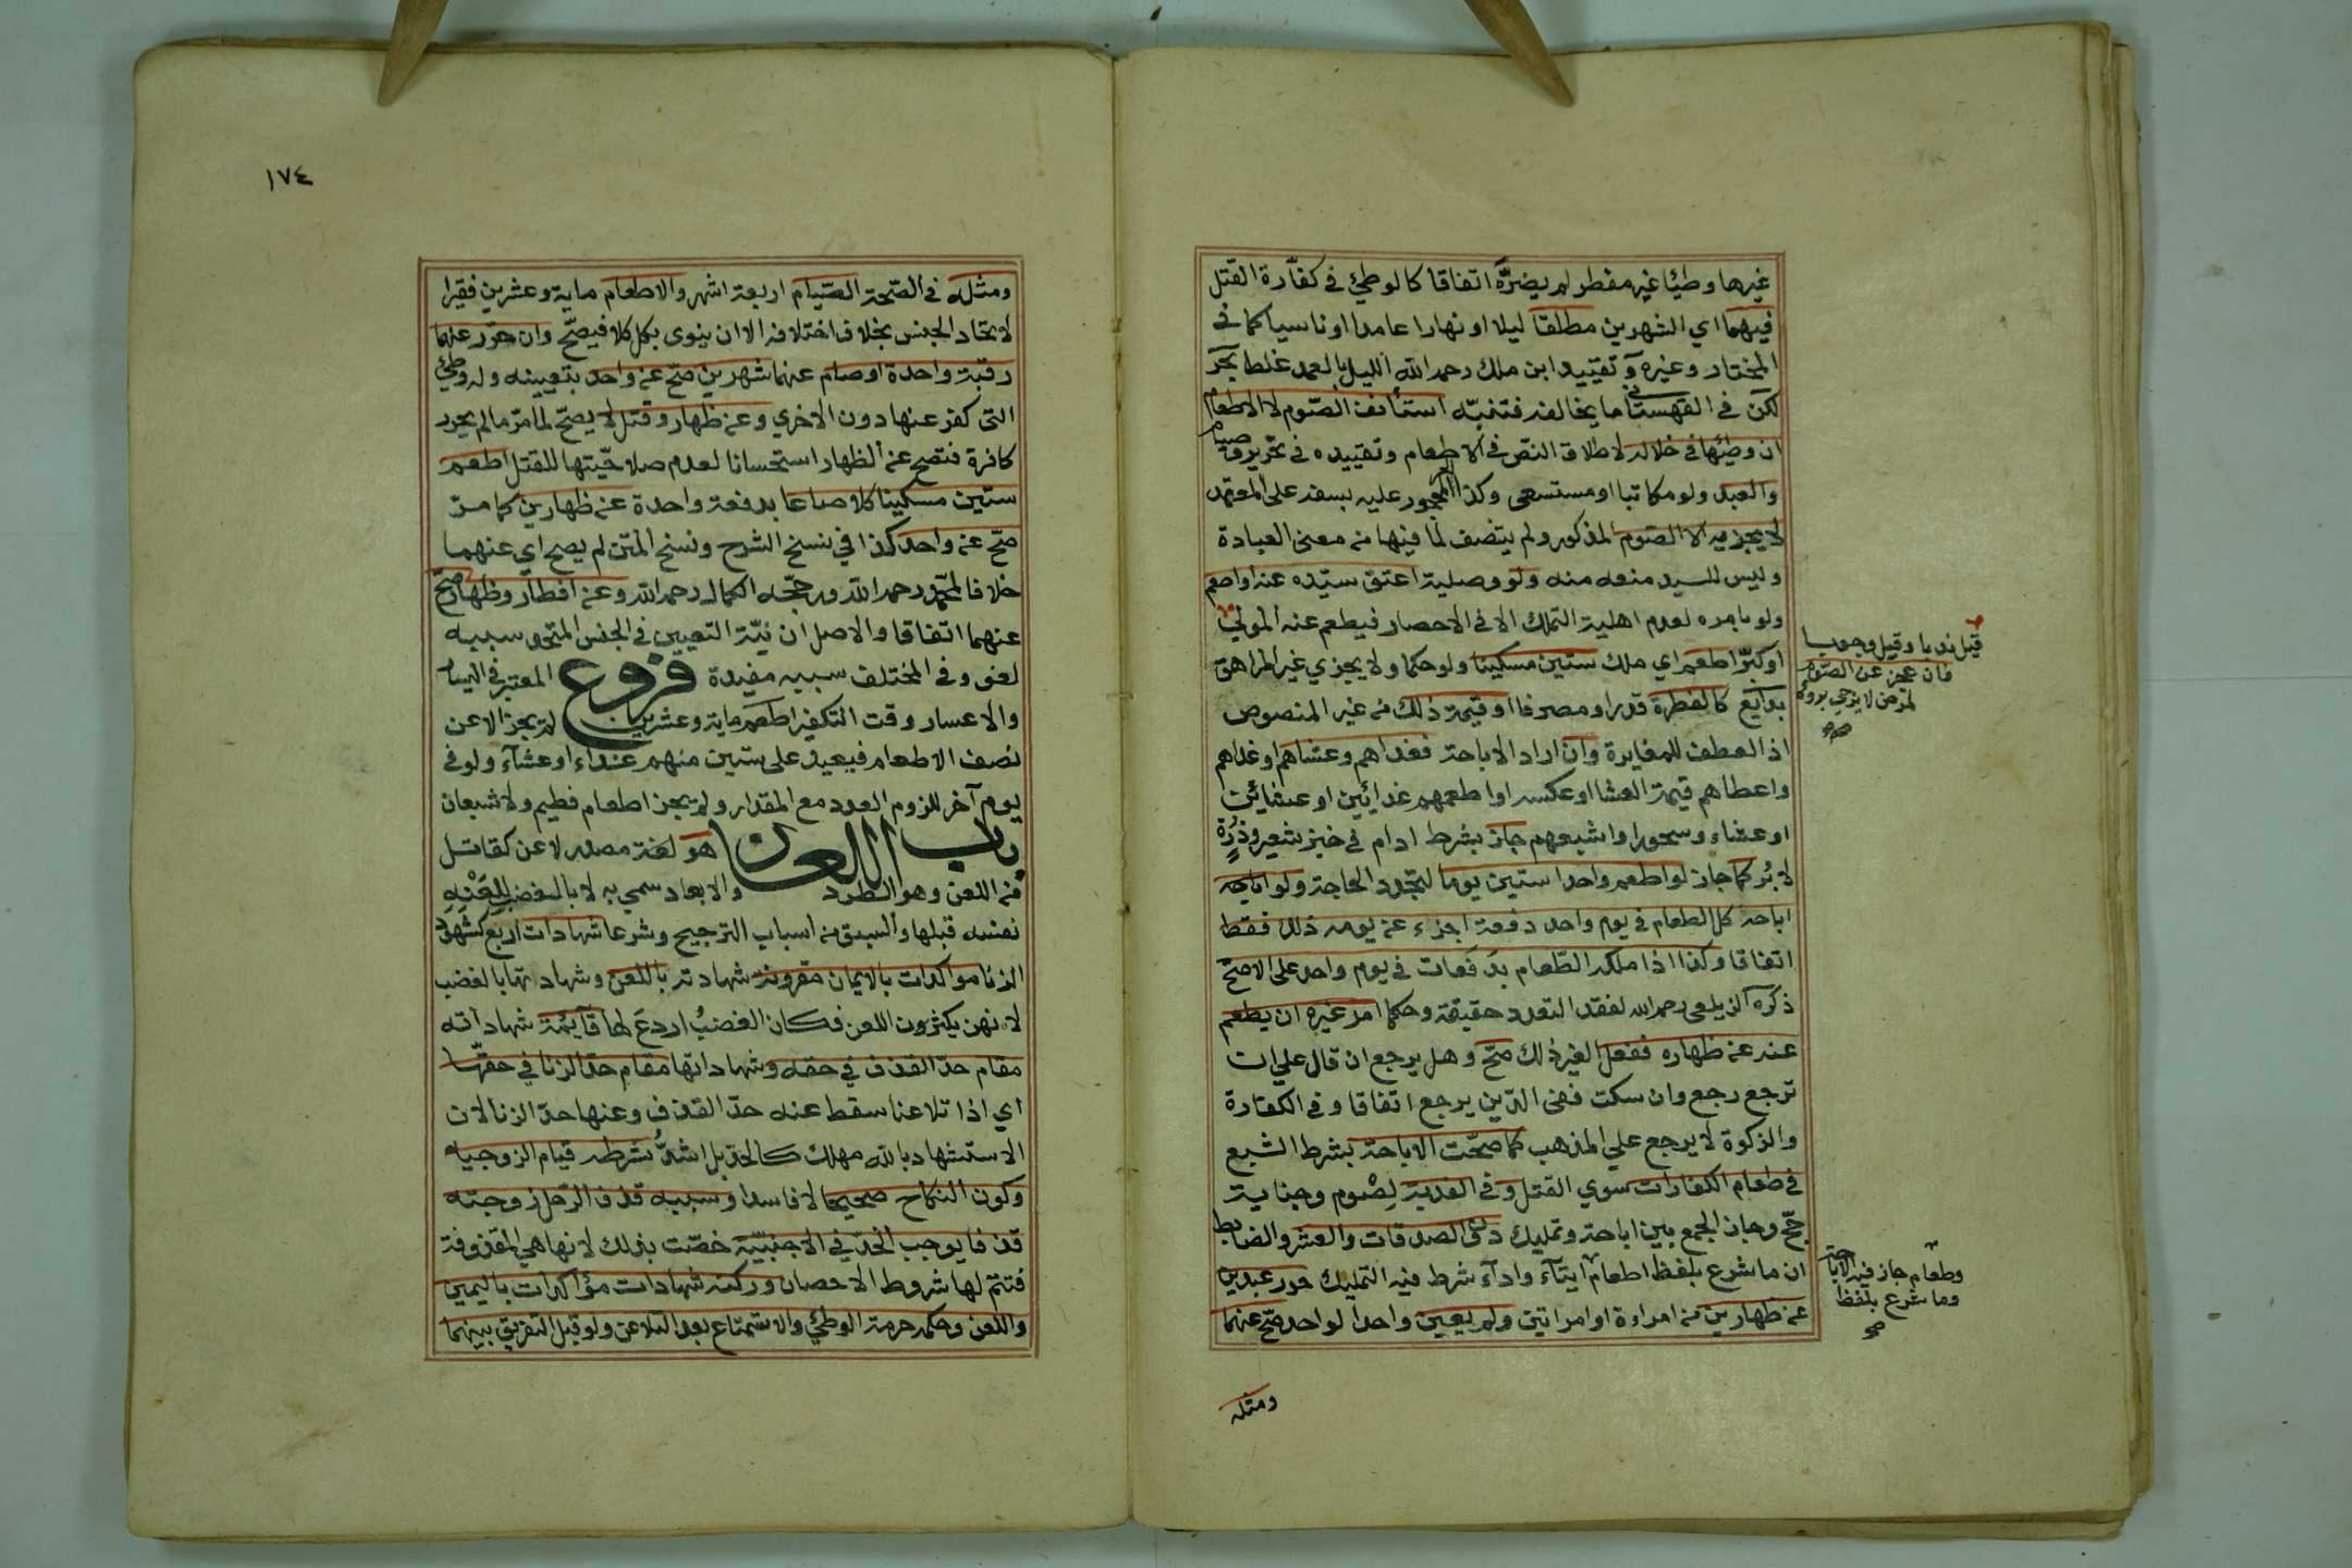 غيرها وطئا غير مفطر لم يضرّه اتفاقا كالوطئ في كفّارة القتل
فيهما اي الشهرين مطلقا ليلا او نهارا عامدا او ناسيا كما في
المختار وغيره وتقييد ابن ملك رحمه الله الليل بالعمد غلط بحر
لكن في القهستاني ما يخالفه فتنبّه استأنف الصوم لا الاطعام
ان وطئها في خلاله لاطلاق النص في الاطعام وتقييده في تحرير وصيام
والعبد ولو مكاتبا او مستسعى وكذا المحجور عليه بسفه على المعتمد
لا يجزيه الا الصوم المذكور ولم يتنصف لما فيها من معنى العبادة
وليس للسيد منعه منه ولو وصلية اعتق سيّده عنه او اطعم
ولو بامره لعدم اهلية التملك الا في الاحصار فيطعم عنه المولي
قيل ندبا وقيل وجوبا
فان عجز عن الصوم
لمرض لا يرجي بروءه
صح
او كبرا اطعم اي ملك ستين مسكينا ولو حكما ولا يجزي غير المراهق
بدايع كالفطرة قدرا ومصرفا او قيمة ذلك من غير المنصوص
اذ العطف للمغايرة وان اراد الاباحة فغداهم وعشاهم او غداهم
واعطاهم قيمة العشا او عكسه او اطعمهم غدائين او عشائين
او عشاء وسحورا واشبعهم جاز بشرط ادام في خبز شعير وذرة
لا بُر كما جاز لو اطعم واحدا ستين يوما لتجدد الحاجة ولو اباحه
اباحه كل الطعام في يوم واحد دفعة اجزء عن يومه ذلك فقط
اتفاقا وكذا اذا ملكه الطّعام بدفعات في يوم واحد على الاصحّ
ذكره الزيلعي رحمه الله لفقد التعدد حقيقة وحكما امر غيره ان يطعم
عنه عن ظهاره ففعل الغير ذلك صحّ وهل يرجع ان قال علي ان
ترجع رجع وان سكت ففي الدّين يرجع اتفاقا وفي الكفارة
والزكوة لا يرجع علي المذهب كما صحّت الاباحة بشرط الشبع
في طعام الكفارات سوي القتل وفي الفدية لصوم وجناية
حجّ وجاز الجمع بين اباحة وتمليك دون الصدقات والعشر والضابط
ان ما شرع بلفظ اطعام ايتآء وادآء شرط فيه التمليك حرر عبدين
وطعام جاز فيه الاباحة
وما شرع بلفظ
صح
عن ظهارين من امراءة او امراتين ولم يعين واحدا لواحد صحّ عنهما
ومثله
١٧٤
ومثله في الصّحة الصّيام اربعة اشهر والاطعام ماية وعشرين فقيرا
لاتحاد الجنس بخلاف اختلافه الا ان ينوى بكل كلا فيصّح وان حرّر عنهما
رقبة واحدة او صام عنهما شهرين صحّ عن واحد بتعيينه وله وطئ
التى كفر عنها دون الاخري وعن ظهار وقتل لا يصحّ لما مرّ ما لم يحرر
كافرة فتصح عن الظهار استحسانا لعدم صلاحيّتها للقتل اطعم
ستين مسكينا كلا صاعا بدفعة واحدة عن ظهارين كما مرّ
صحّ عن واحد كذا في نسخ الشرح ونسخ المتن لم يصح اي عنهما
خلافا لمحمّد رحمه الله ورجحّه الكمال رحمه الله وعن افطار وظهار صحّ
عنهما اتفاقا والاصل ان نيّة التعيين في الجنس المتحد سببه
لغو وفي المختلف سببه مفيدة فروع المعتبر في اليسار
والاعسار وقت التكفير اطعم ماية وعشرين لم يجز الا عن
نصف الاطعام فيعيد على ستين منهم غداء او عشآء ولو في
يوم آخر للزوم العدد مع المقدار ولم يجز اطعام فطيم ولا شبعان
باب اللعان هو لغة مصدر لاعن كقاتل
من اللعن وهو الطرد والابعاد سمي به لا بالغضب للعنه
نفسه قبلها والسبق من اسباب الترجيح وشرعا شهادات اربع كشهود
الزنا مواكدات بالايمان مقرونة شهادته باللعن وشهادتها بالغضب
لانهن يكثرون اللعن فكان الغضبُ اردع لها قآيمة شهاداته
مقام حدّ القذف في حقه وشهاداتها مقام حدّ الزنا في حقّها
اي اذا تلاعنا سقط عنه حدّ القذف وعنها حدّ الزنا لان
الاستشهاد بالله مهلك كالحدّ بل اشدُّ شرطه قيام الزوجية
وكون النكاح صحيحا لا فاسدا وسببه قذف الرّجل زوجته
قذفا يوجب الحدّ في الاجنبيّة خصّت بذلك لانها هي المقذوفة
فتتم لها شروط الاحصان وركنه شهادات مؤاكدات باليمين
واللعن وحكمه حرمة الوطئ والاستمتاع بعد التلاعن ولو قبل التفريق بينهما